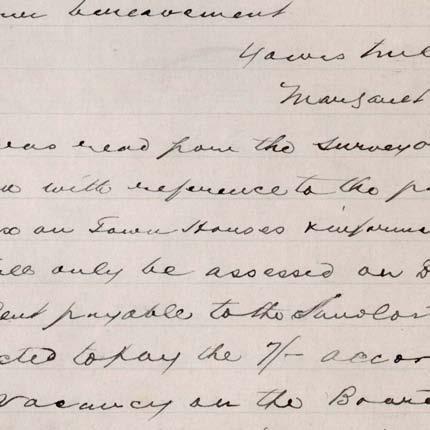 bereavement
Yours
Margaret
was read from the Survey
with reference to the
on Town Houses & inform
only be assessed on
payable to the Landlor
cted to pay the 7/- accor
Vacancy on the Board